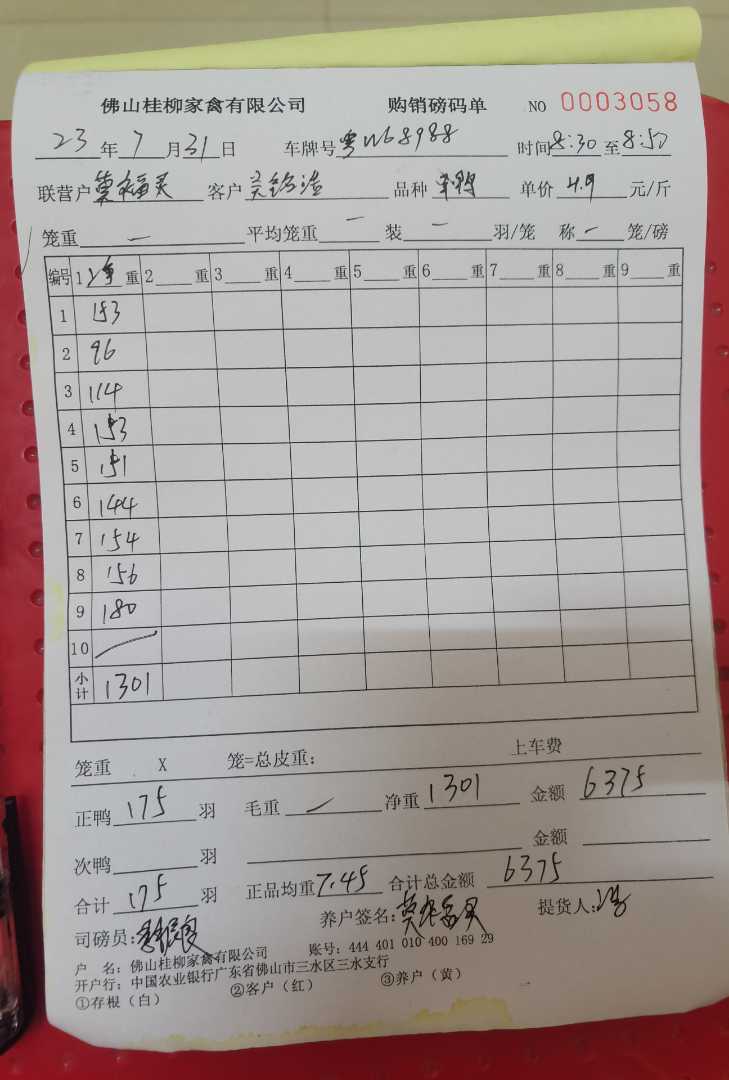 佛山桂柳家禽有限公司 购销磅码单 NO 0003058
23年7月31日 车牌号粤W68988 时间8:30至8:50
联营户 客户 品种 单价4.9元/斤
笼重— 平均笼重— 装—羽/笼 称—笼/磅
编号 1 重 2 重 3 重 4 重 5 重 6 重 7 重 8 重 9 重
1 153
2 96
3 114
4 153
5 151
6 144
7 154
8 156
9 180
10
小计 1301
笼重 X 笼=总皮重: 上车费
正鸭175羽 毛重 净重1301 金额6375
次鸭 羽 金额
合计175羽 正品均重7.45 合计总金额6375
司磅员: 养户签名: 提货人:
户 名: 佛山桂柳家禽有限公司 账号: 444 401 010 400 169 29
开户行: 中国农业银行广东省佛山市三水区三水支行
①存根(白) ②客户(红) ③养户(黄)